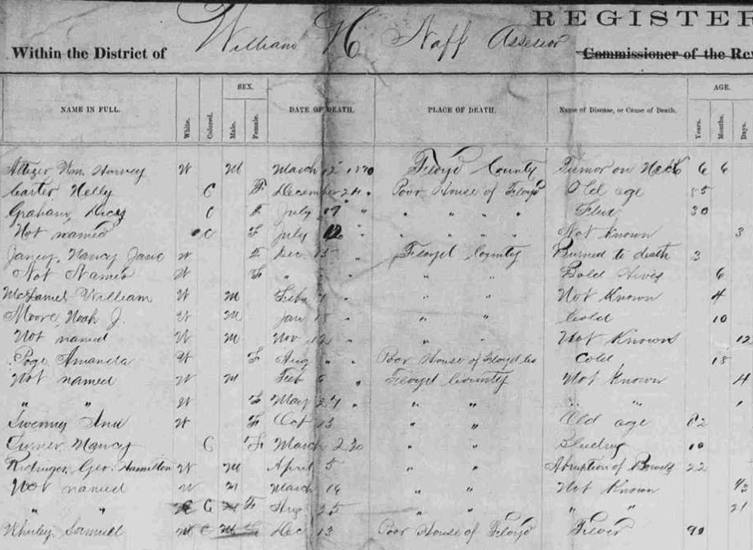 REGISTER
Within the District of William H Naff Assessor Commissioner of the Rev
NAME IN FULL. White. Colored. SEX. Male. Female. DATE OF DEATH. PLACE OF DEATH. Name of Disease, or Cause of Death. AGE. Years. Months. Days.
Wm. Harvey W M March 12 1870 Floyd County Tumor on Neck 6 6
Carter Nelly C F December 24 " Poor House of Floyd Old age 85
Graham C F July 17 " " " " " Flux 30
Not named C F July 12 " " " " " Not Known 3
Janey, Nancy Jane W F Dec 15 " Floyd County Burned to death 3
Not Named W F " " " " " Bold Hives 6
McDaniel William W M " " " Not Known 4
Moore, Noah J. W M Jan 18 " " " Cold 10
Not named W M Nov 12 " " " Not Known 12
Poge Amanda W F Aug " " Poor House of Floyd Co Cold 18
Not named W M Feb 5 " Floyd County Not Known 4
" " W F May 24 " " " " " 1
Ann W F Oct 13 " " Old age 82
Turner Nancy C F March " " 10
Geo. Hamilton W M April 5 " " of Bowels 22
Not named W M March 14 " " Not Known
" " C F Aug 25 " " " " 21
Samuell C Dec 13 Poor House of Floyd Fever 90